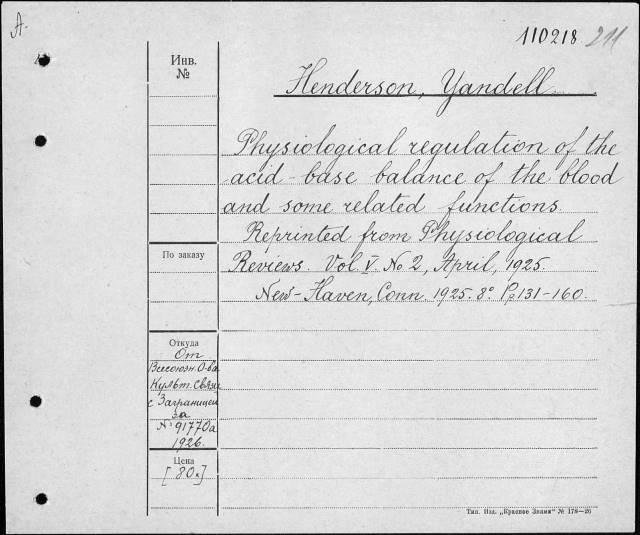 A.
110218 211
Инв.
№
Henderson, Yandell
Physiological regulation of the
acid-base balance of the blood
and some related functions
Reprinted from Physiological
По заказу
Reviews. Vol. V. No 2, April, 1925.
New-Haven, Conn. 1925. 8° Pp 131-160.
Откуда
От
Всесоюзн. О-ва
Культ. Связи
с Заграницей
за
№ 91770а
1926.
Цена
[80к]
Тип. Изд. „Красное Знамя" № 178—26